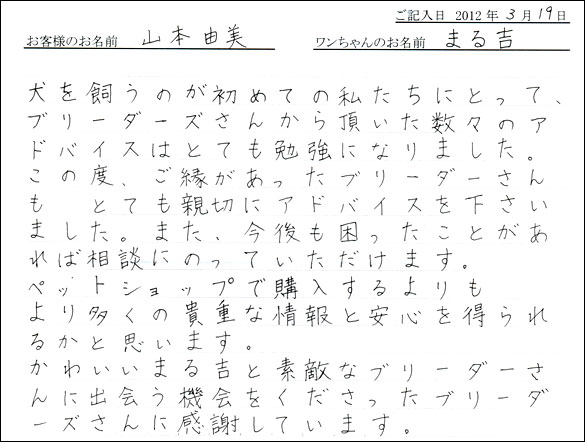 ご記入日 2012年 3月 19日
お客様のお名前 山本由美 ワンちゃんのお名前 まる吉
犬を飼うのが初めての私たちにとって、
ブリーダーズさんから頂いた数々のア
ドバイスはとても勉強になりました。
この度、ご縁があったブリーダーさん
も とても親切にアドバイスを下さい
ました。また、今後も困ったことがあ
れば相談にのっていただけます。
ペットショップで購入するよりも
より多くの貴重な情報と安心を得られ
るかと思います。
かわいいまる吉と素敵なブリーダーさ
んに出会う機会をくださったブリーダ
ーズさんに感謝しています。